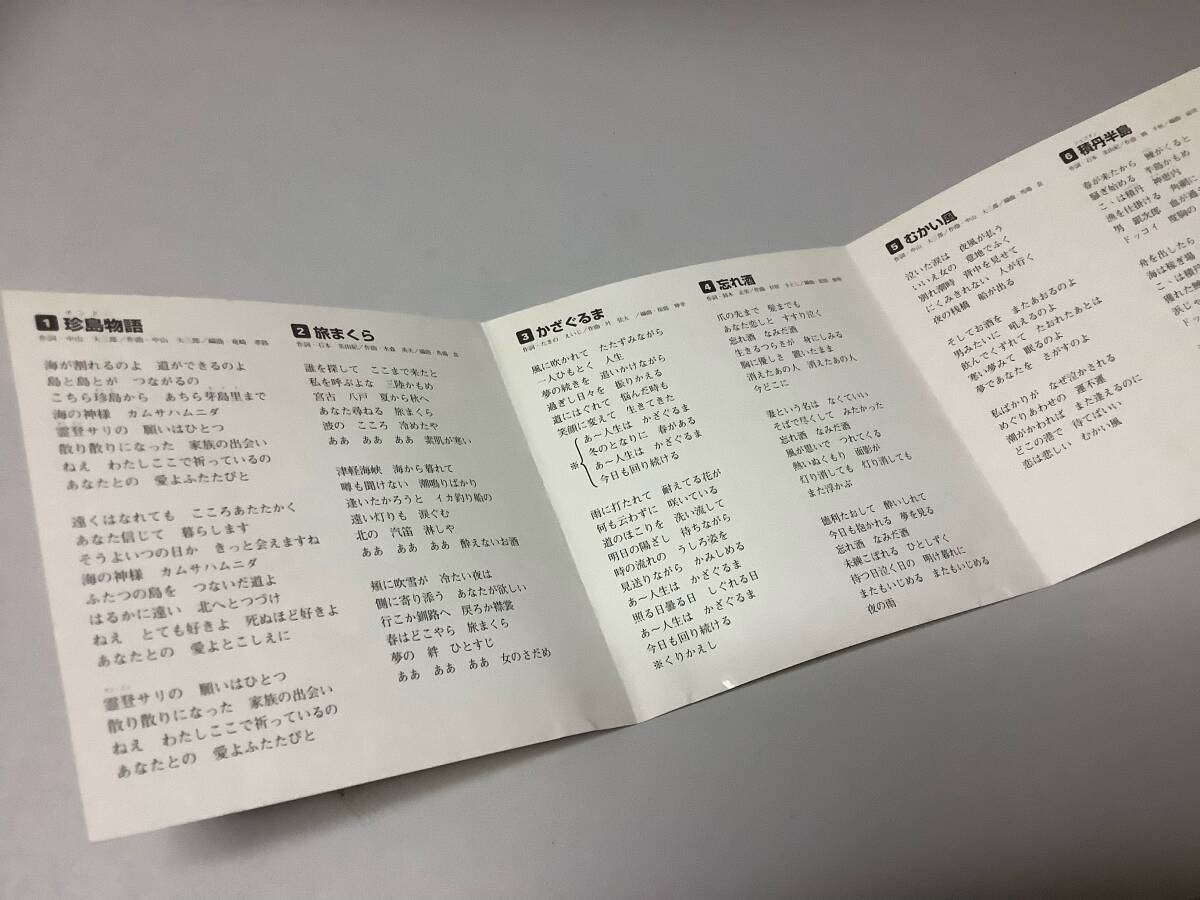 1 珍島物語
作詞・中山 大三郎／作曲・中山 大三郎／編曲・竜崎 孝路
海が割れるのよ 道ができるのよ
島と島とが つながるの
こちら珍島から あちら芽島里まで
海の神様 カムサハムニダ
霊登サリの 願いはひとつ
散り散りになった 家族の出会い
ねえ わたしここで祈っているの
あなたとの 愛よふたたびと
遠くはなれても こころあたたかく
あなた信じて 暮らします
そうよいつの日か きっと会えますね
海の神様 カムサハムニダ
ふたつの島を つないだ道よ
はるかに遠い 北へとつづけ
ねえ とても好きよ 死ぬほど好きよ
あなたとの 愛よとこしえに
霊登サリの 願いはひとつ
散り散りになった 家族の出会い
ねえ わたしここで祈っているの
あなたとの 愛よふたたびと
2 旅まくら
作詞・石本 美由紀／作曲・水森 英夫／編曲・馬場 良
誰を探して ここまで来たと
私を呼ぶよな 三陸かもめ
宮古 八戸 夏から秋へ
あなた尋ねる 旅まくら
波の こころ 冷めたや
ああ ああ ああ 素肌が寒い
津軽海峡 海から暮れて
噂も聞けない 潮鳴りばかり
逢いたかろうと イカ釣り船の
遠い灯りも 涙ぐむ
北の 汽笛 淋しや
ああ ああ ああ 酔えないお酒
頬に吹雪が 冷たい夜は
側に寄り添う あなたが欲しい
行こか釧路へ 戻ろか襟裳
春はどこやら 旅まくら
夢の 絆 ひとすじ
ああ ああ ああ 女のさだめ
3 かざぐるま
作詞・たきの えいじ／作曲・叶 弦大／編曲・
風に吹かれて たたずみながら
一人ひもとく 人生
夢の続きを 追いかけながら
過ぎし日々を 振りかえる
道にはぐれて 悩んだ時も
笑顔に変えて 生きてきた
※ あ〜人生は かざぐるま
冬のとなりに 春がある
あ〜人生は かざぐるま
今日も回り続ける
雨に打たれて 耐えてる花が
何も云わずに 咲いている
道のほこりを 洗い流して
明日の陽ざし 待ちながら
時の流れの うしろ姿を
見送りながら かみしめる
あ〜人生は かざぐるま
照る日曇る日 しぐれる日
あ〜人生は かざぐるま
今日も回り続ける
※くりかえし
4 忘れ酒
爪の先まで 髪までも
あなた恋しと すすり泣く
忘れ酒 なみだ酒
生きるつらさが 身にしみる
胸に優しさ 置いたまま
消えたあの人 消えたあの人
今どこに
妻という名は なくていい
そばで尽くして みたかった
忘れ酒 なみだ酒
風が思いで つれてくる
熱いぬくもり 面影が
灯り消しても 灯り消しても
また浮かぶ
徳利たおして 酔いしれて
今日も抱かれる 夢を見る
忘れ酒 なみだ酒
未練こぼれる ひとしずく
待つ日泣く日の 明け暮れに
またもいじめる またもいじめる
夜の雨
5 むかい風
作詞・中山 大三郎／作曲・中山 大三郎／編曲・馬場 良
泣いた涙は 夜風が払う
いいえ女の 意地でふく
別れ潮時 背中を見せて
にくみきれない 人が行く
夜の桟橋 船が出る
そしてお酒を またあおるのよ
男みたいに 吠えるのよ
飲んでくずれて たおれたあとは
寒い夢みて 眠るのよ
夢であなたを さがすのよ
私ばかりが なぜ泣かされる
めぐりあわせの 運不運
潮がかわれば また逢えるのに
どこの港で 待てばいい
恋は悲しい むかい風
6 積丹半島
春が来たから 鰊がくると
騒ぎ始める 半島かもめ
こゝは積丹 神恵内
漁を仕掛ける 角網に
男 銀次郎 血が通
ドッコイ 度胸の
舟を出したら
海は稼ぎ場
獲れた鰊
浜に